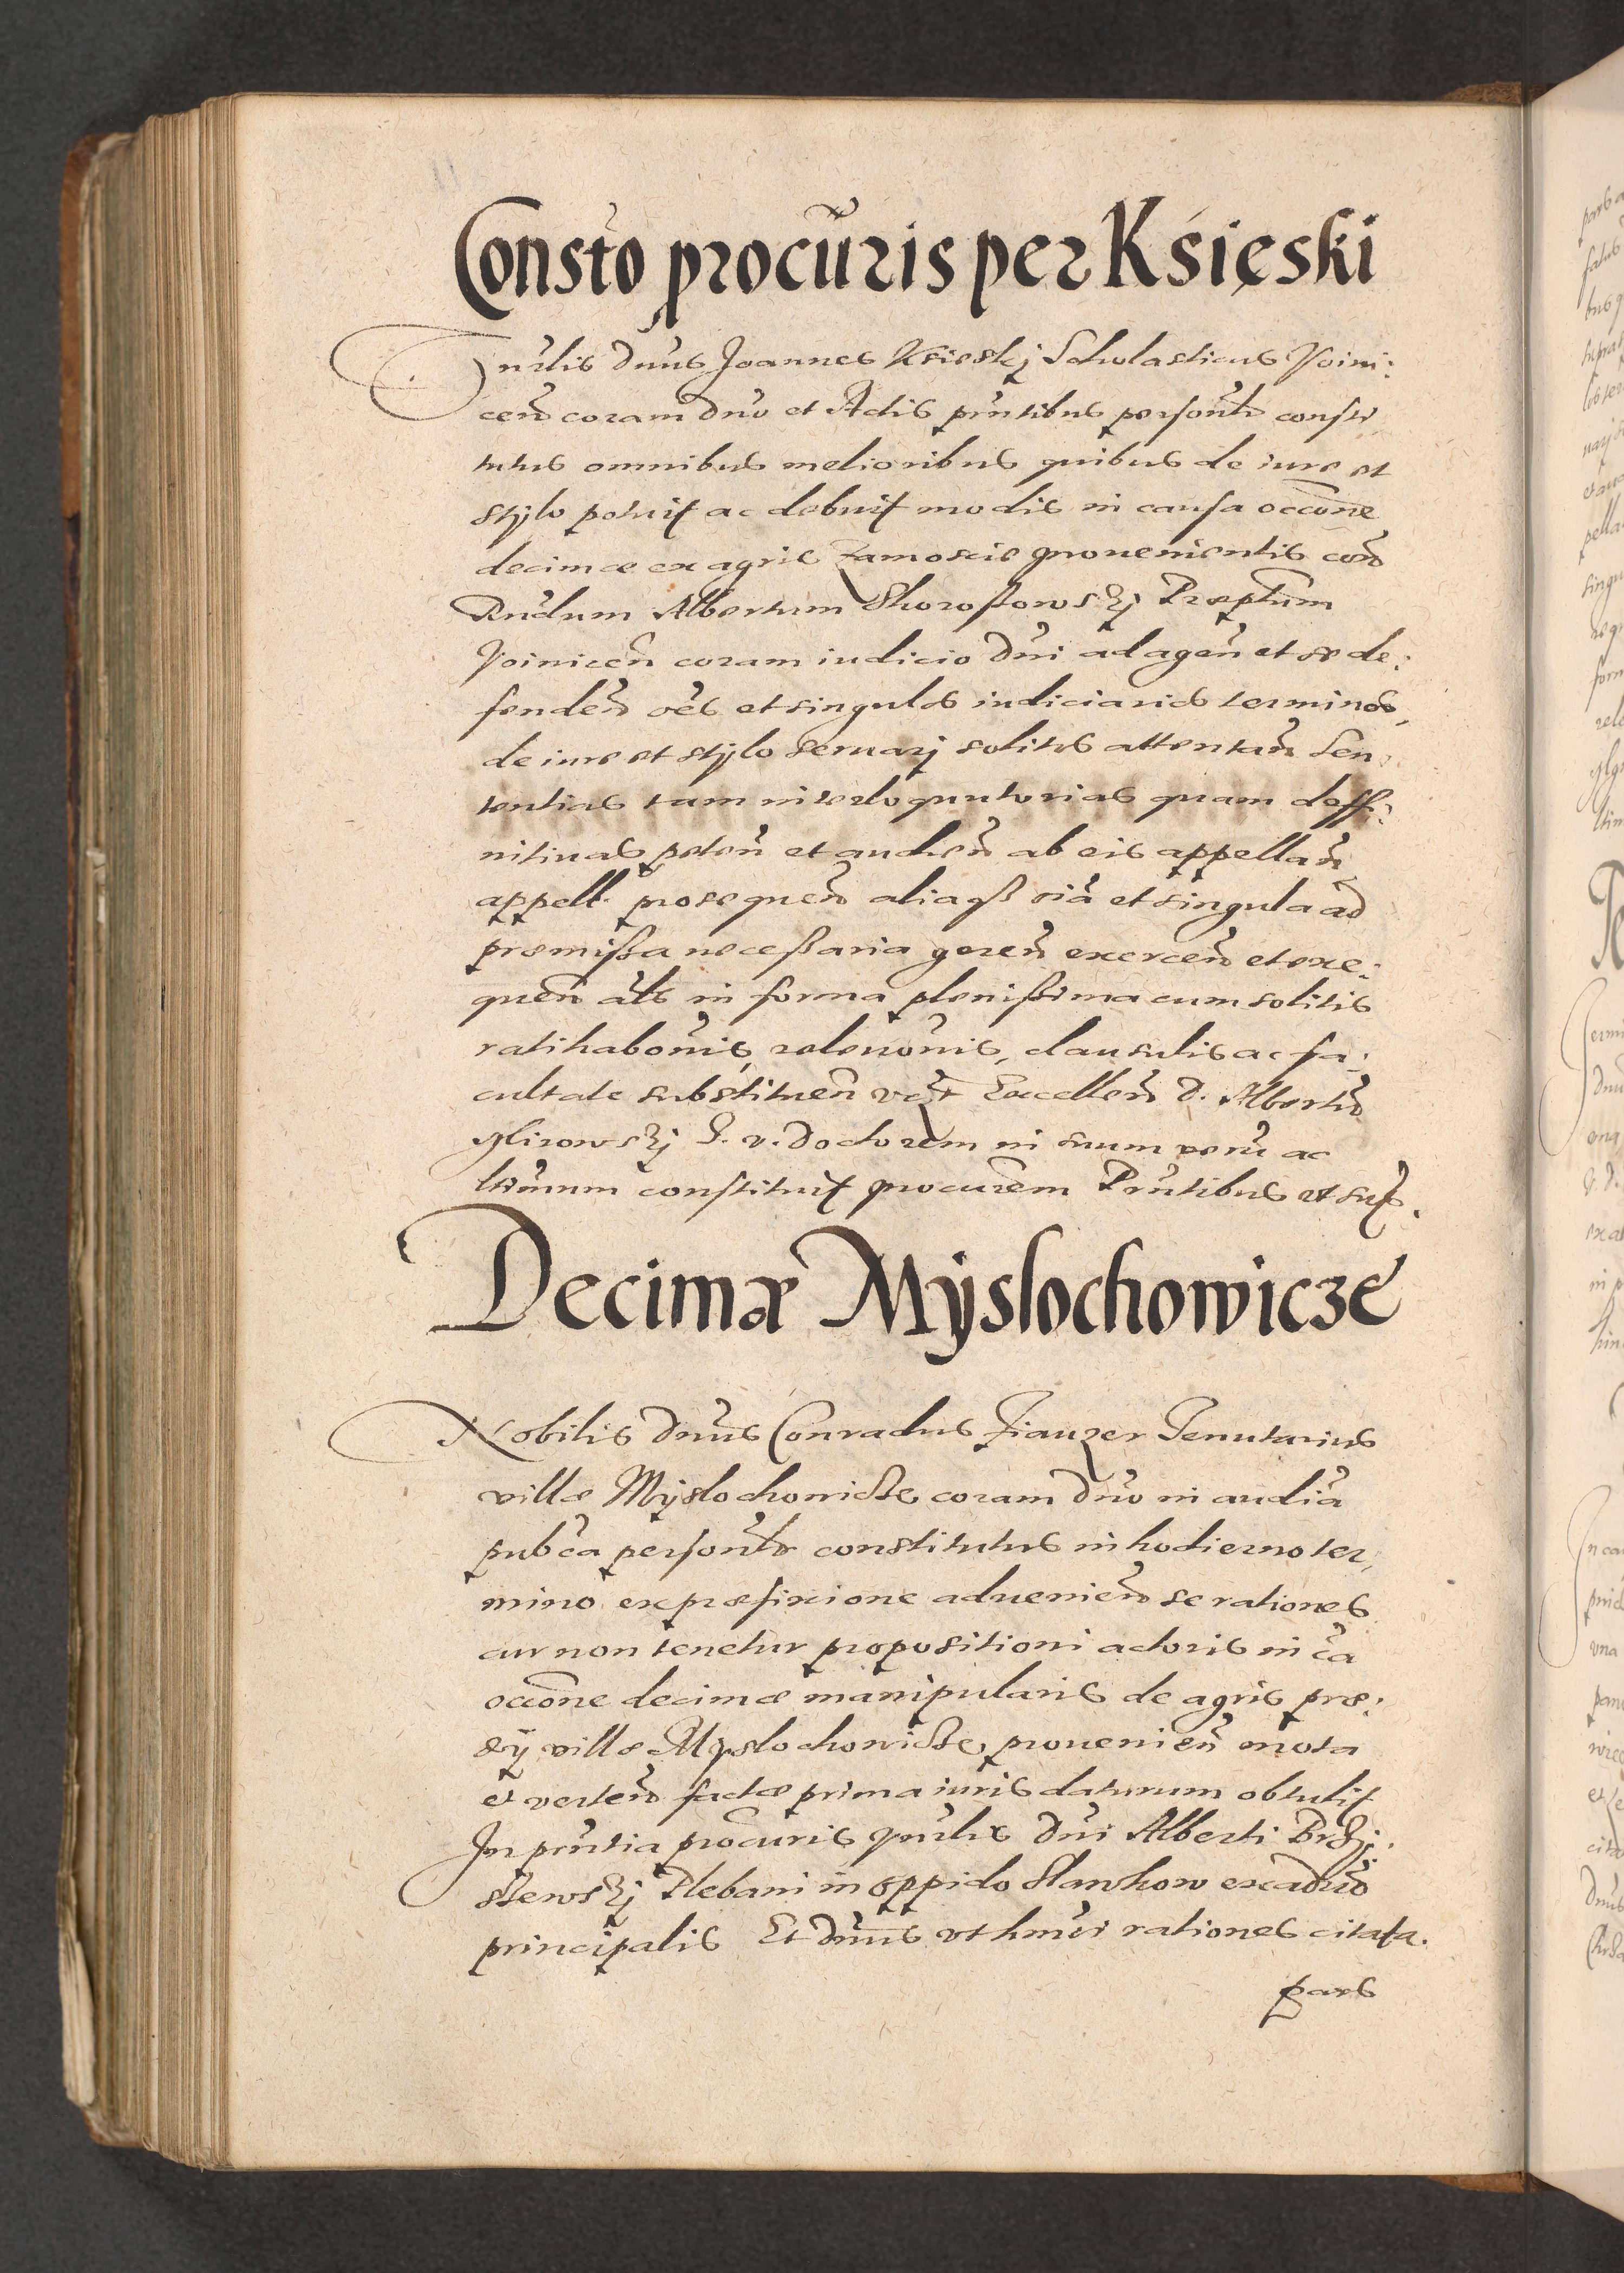 Constō procūris per Księski
Vnrlis dnus Joannes Ksieskj Scholasticus Voini:
cen̄ coram dno et Actis pntibus personlr consti
tutus omnibus melioribus quibus de iure et
stylo potuit ac debuit modis in causa occōne
decimæ ex agris Zamoscie prouenientis con̄
Rndum Albertum Skoroszowskj Præptum
Voinicen̄ coram iudicio Dni ad agen̄ et se de:
fenden̄ oēs et singulos iudiciarios terminos,
de iure et stylo seruarj solitos attentan̄ Sen
tentias tam interloquutorias quam deffi:
nitiuas peten̄ et audien̄ ab eis appellan̄
appell. prosequen̄ aliaqß oīa et singula ad
præmissa necessaria geren̄ exercen̄ et exe:
quen̄ als in forma plenissima cum solitis
ratihabōnis, releuōnis, clausulis ac fa:
cultate substituen̄ Excellen̄ D. Albertū
J. v. Doctorem in suum verū ac
ltimum constituit procurem Pntibus ut supr.
Decimæ Myslochowicze
Nobilis Dnus Conradus Tenutarius
villæ Myslochowicze coram Dno in audīa
pubca personlr constitutus in hodierno ter,
mino ex præfixione aduenien̄ se rationes
cur non tenetur propositioni actoris in cā
occōne decimæ manipularis de agris præ:
villæ Myslochowicze, prouenien̄ mota
et verten̄ factæ prima iuris daturum obtulit
In pntia procuris Vnrlis Dni Alberti Brzy:
Plebani in oppido Slawkow ex aduō
principalis Et Dnus rationes citata.
pars